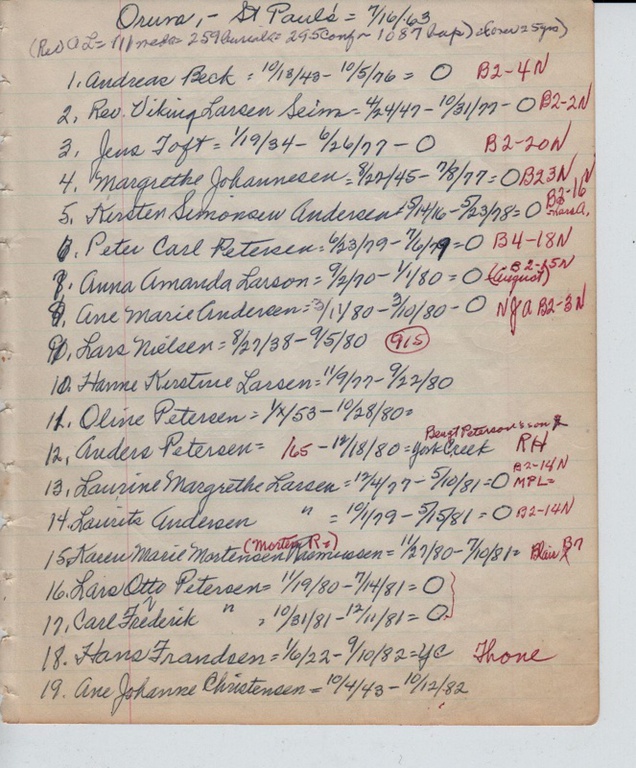 Oruva, - St Paul's = 7/16/63
(Rev OL = 111 meds = 259 burials = 295 conf ~ 1087 bap)
1. Andreas Beck = 10/13/43 - 10/5/76 = O B2-4N
2. Rev. Viking Larsen Seim = 4/24/47 - 10/31/77 - O B2-2N
3. Jens Toft = 1/19/34 - 6/26/77 - O B2-20N
4. Margrethe Johannesen = 8/27/45 - 7/8/77 = O B23N
5. Kirsten Simonsen Andersen 5/14/16 - 5/23/78 = O B2-16
6. Peter Carl Petersen = 6/23/79 - 7/6/79 = O B4-18N
7. Anna Amanda Larson = 9/2/70 - 1/1/80 = O (August) B2-15N
8. Ane Marie Andersen = 3/1/80 - 3/10/80 - O N J a B2-3N
9. Lars Nielsen = 8/27/38 - 9/5/80 915
10. Hanne Kirstine Larsen = 11/9/77 - 9/22/80
11. Oline Petersen = /53 - 10/28/80 =
12. Anders Petersen = 165 - 12/18/80 = York Creek Bengt Peterson's son RH
13. Laurine Margrethe Larsen = 12/4/77 - 5/10/81 = O B2-14N MPL=
14. Laurits Andersen " = 10/1/79 - 5/15/81 = O B2-14N
15. Karen Marie Mortensen Rasmussen (Morten R=) = 11/27/80 - 7/10/81 = Blair B7
16. Lars Otto Petersen = 11/19/80 - 7/14/81 = O
17. Carl Frederik " = 10/31/81 - 12/11/81 = O
18. Hans Frandsen = 1/6/22 - 9/10/82 = YC Thone
19. Ane Johanne Christensen = 10/4/43 - 10/12/82